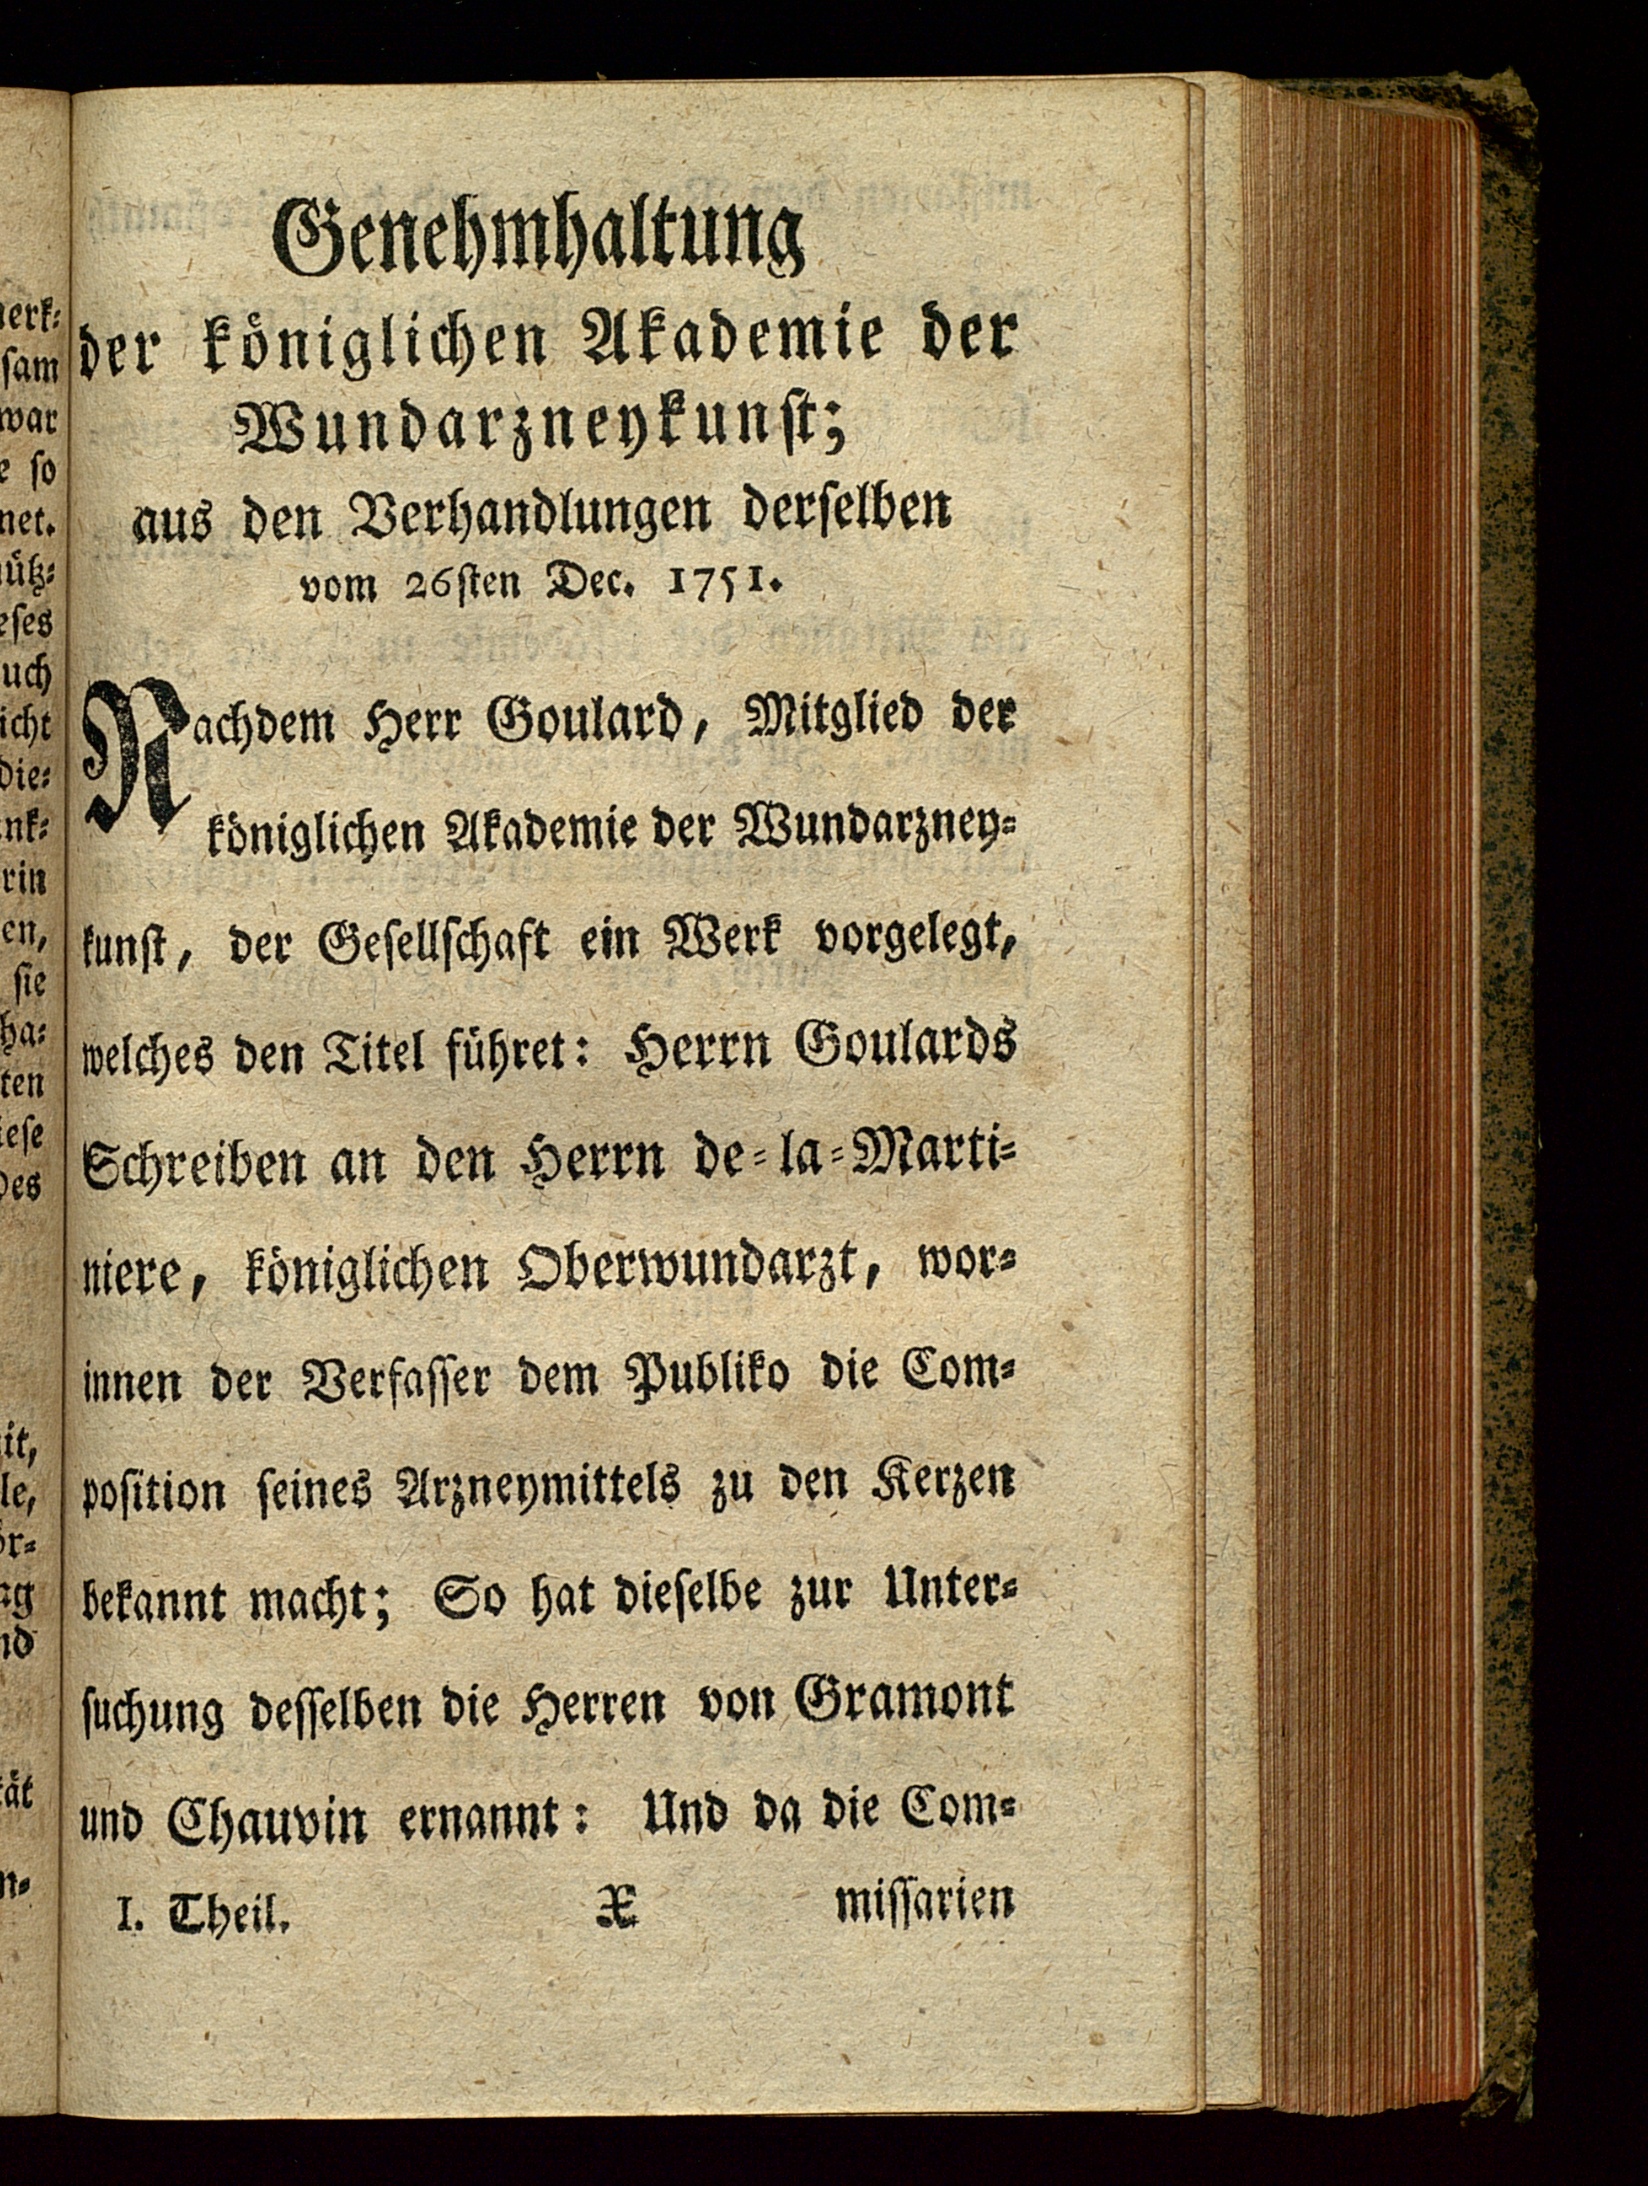 Genehmhaltung
der königlichen Akademie der
Wundarzneykunst;
aus den Verhandlungen derselben
vom 26sten Dec. 1751.
Nachdem Herr Goulard, Mitglied der
königlichen Akademie der Wundarzney-
kunst, der Gesellschaft ein Werk vorgelegt,
welches den Titel führet: Herrn Goulards
Schreiben an den Herrn de-la-Marti-
niere, königlichen Oberwundarzt, wor-
innen der Verfasser dem Publiko die Com-
position seines Arzneymittels zu den Kerzen
bekannt macht; So hat dieselbe zur Unter-
suchung desselben die Herren von Gramont
und Chauvin ernannt: Und da die Com-
I. Theil. X missarien